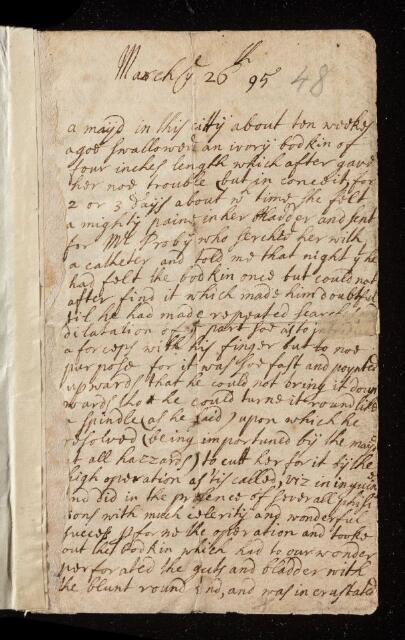 March ye 26th 95 48
a mayd in this citty about ten weekes
agoe swallowed an ivory bodkin of
four inches length which after gave
her noe trouble but in conceit, for
2 or 3 days about wch time she felt
a mighty paine in her bladder and sent
for Mr Proby who serched her with
a catheter and told me that night yt he
had felt the bodkin once but could not
after find it which made him doubtful
til he had made repeated search
dilatation of ye part soe as to
a forceps with his finger but to noe
purpose for it was soe fast and poynted
upwards that he could not bring it down
wards tho he could turne it round like
a spindle (as he said) upon which he
resolved (being importuned by the mayd
at all hazzards) to cutt her for it by the
high operation as 'tis called, viz in inguen
and did in the presence of severall phisi
tions with much celerity and wonderful
success pforme the operation and tooke
out the bodkin which had to our wonder
perforated the guts and bladder with
the blunt round end, and was incrustated